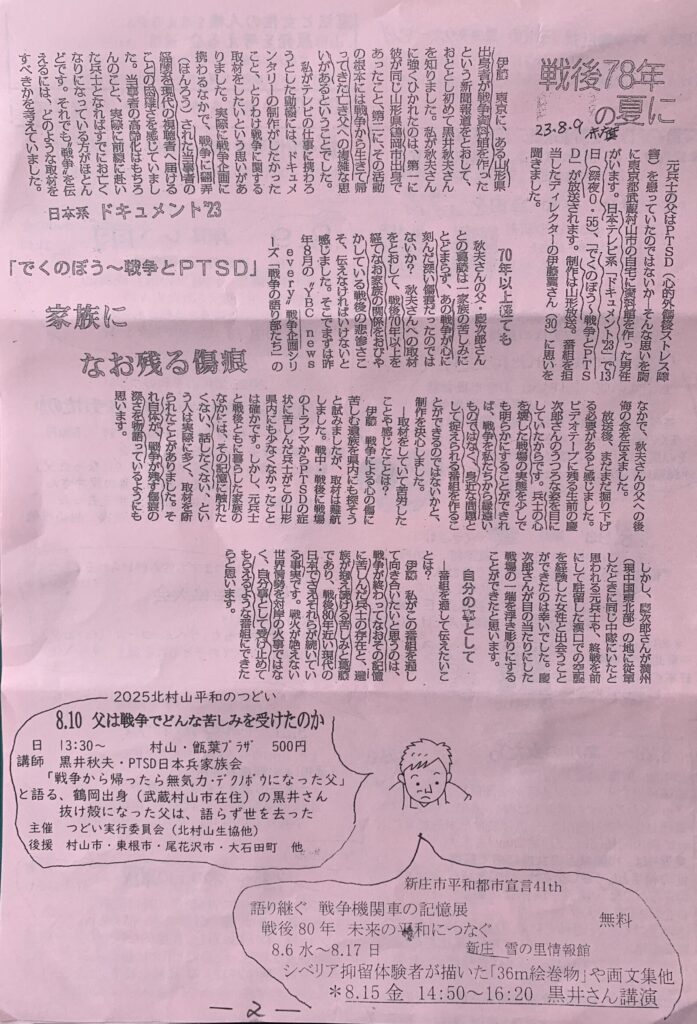 戦後78年
の夏に
23.8.9 赤旗
元兵士の父はPTSD(心的外傷後ストレス障
害)を患っていたのではないか―そんな思いを胸
に東京都武蔵村山市の自宅に資料館を作った男性
がいます。日本テレビ系「ドキュメント'23」で13
日(深夜0・55)、「でくのぼう〜戦争とPTS
D」が放送されます。制作は山形放送。番組を担
当したディレクターの伊藤翼さん(30)に思いを
聞きました。
伊藤 東京に、ある山形県
出身者が戦争資料館を作った
という新聞報道をとおして、
おととし初めて黒井秋夫さん
を知りました。私が秋夫さん
に強くひかれたのは、第一に
彼が同じ山形県鶴岡市出身で
あったこと、第二に、その活動
の根本には戦争から生きて帰
ってきた亡き父への複雑な思
いがあるということでした。
私がテレビの仕事に携わろ
うとした動機には、ドキュメ
ンタリーの制作がしたかった
こと、とりわけ戦争に関する
取材をしたいという思いがあ
りました。実際に戦争企画に
携わるなかで、戦争に翻弄
(ほんろう)された当事者の
経験を現代の視聴者へ届ける
ことの困難さを感じていまし
た。当事者の高齢化はもちろ
んのこと、実際に前線に赴い
た兵士となればすでにお亡く
なりになっている方がほとん
どです。それでも〝戦争〟を伝
えるには、どのような取材を
すべきかを考えていました。
日本系 ドキュメント'23
「でくのぼう〜戦争とPTSD」
家族に
なお残る傷痕
70年以上経ても
秋夫さんの父・慶次郎さん
との葛藤は一家族の苦しみに
とどまらず、あの戦争が心に
刻んだ深い傷痕だったのでは
ないか？ 秋夫さんへの取材
をとおして、戦後70年以上を
経てなお家族の関係をおびや
かしている戦後の悲惨さこ
そ、伝えなければいけないと
感じました。そこでまずは昨
年8月の〝YBC news
every〟戦争企画シリ
ーズ「戦争の語り部たち」の
なかで、秋夫さんの父への後
悔の念を伝えました。
放送後、まだまだ掘り下げ
る必要があると感じました。
ビデオテープに残る生前の慶
次郎さんのうつろな姿を目に
していたからです。兵士の心
を壊した戦場の実態を少しで
も明らかにすることができれ
ば、戦争を私たちから縁遠い
ものではなく、身近な問題と
して捉えられる番組を作るこ
とができるのではないかと、
制作を決心しました。
―取材をしていて苦労した
ことや感じたことは？
伊藤 戦争による心の傷に
苦しむ遺族を県内にも探そう
と試みましたが、取材は難航
しました。戦中・戦後に戦場
のトラウマからPTSDの症
状に苦しんだ兵士がこの山形
県内にも少なくなかったこと
は確かです。しかし、元兵士
と戦後ともに暮らした家族の
なかには、その記憶に触れた
くない、話したくない、とい
う人は実際に多く、取材を断
られたことがありました。そ
れ自体が、戦争が残す傷痕の
深さを物語っているようにも
思います。
しかし、慶次郎さんが満州
(現中国東北部)の地に従軍
したときに同じ中隊にいたと
思われる元兵士や、終戦を前
にして駐留した漢口での空襲
を経験した女性と出会うこと
ができたのは幸いでした。慶
次郎さんが目の当たりにした
戦場の一端を浮き彫りにする
ことができたと思います。
自分の事として
―番組を通して伝えたいこ
とは？
伊藤 私がこの番組を通し
て向き合いたいと思うのは、
戦争が終わってなおその記憶
に苦しんだ兵士の存在と、遺
族が抱え続ける苦しみと葛藤
であり、戦後80年近い現代の
日本でさえそれらが続いてい
る事実です。戦火が絶えない
世界情勢を対岸の火事ではな
く、自分事として受け止めて
もらえるような番組にできた
らと思います。
2025北村山平和のつどい
8.10 父は戦争でどんな苦しみを受けたのか
日 13:30~ 村山・甑葉ﾌﾟﾗｻﾞ 500円
講師 黒井秋夫・PTSD日本兵家族会
「戦争から帰ったら無気力・デクノボウになった父」
と語る、鶴岡出身(武蔵村山市在住)の黒井さん
抜け殻になった父は、語らず世を去った
主催 つどい実行委員会(北村山生協他)
後援 村山市・東根市・尾花沢市・大石田町 他
新庄市平和都市宣言41th
語り継ぐ 戦争機関車の記憶展
無料
戦後80年 未来の平和につなぐ
8.6水~8.17日 新庄 雪の里情報館
シベリア抑留体験者が描いた「36m絵巻物」や画文集他
*8.15金 14:50~16:20 黒井さん講演
—2—